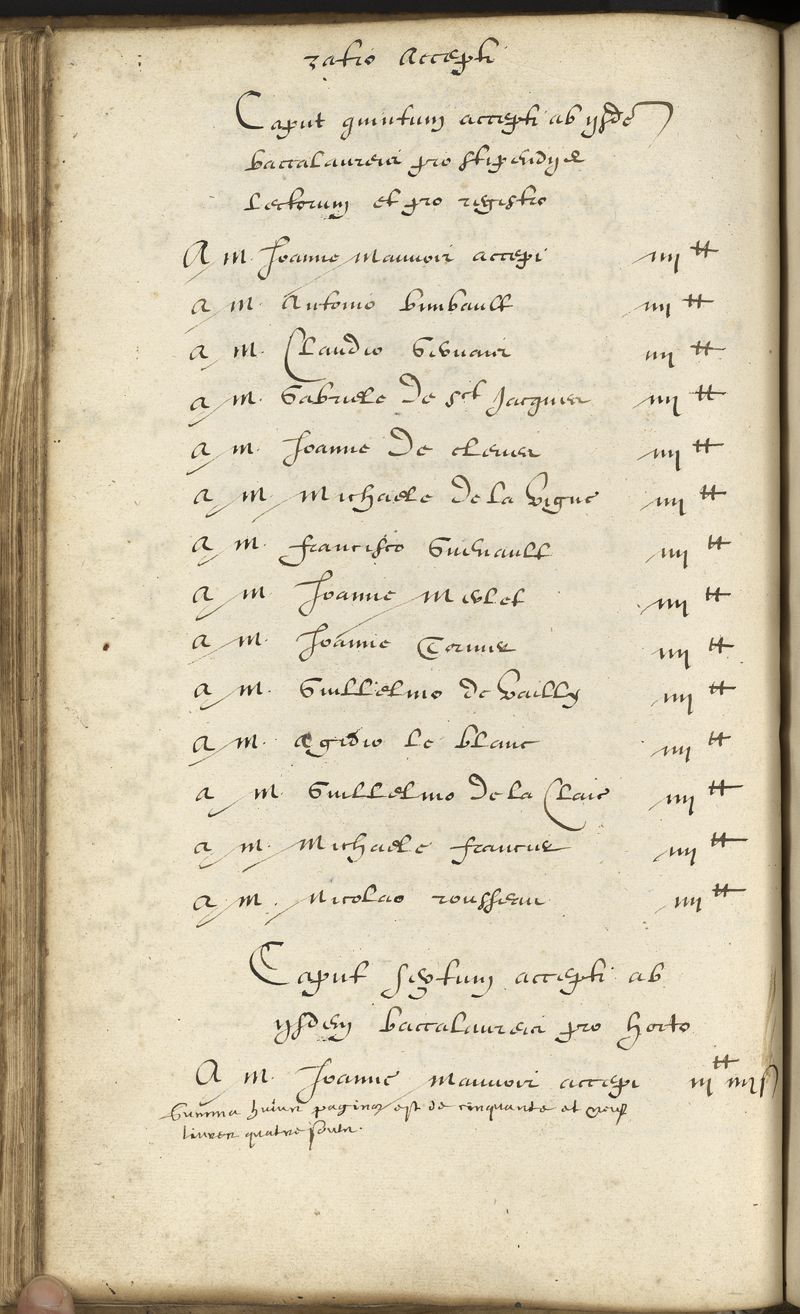 ratio Accepti
Caput quintum accepti ab ijsdē
baccalaureis pro stipendijs
lectorum et pro registro
A M. Joanne Mauvoir accepi iiij ₶
A M. Antonio bimbault iiij ₶
A M. Claudio iiij ₶
A M. Gabriele De sct Jacques iiij ₶
A M. Joanne De cleves iiij ₶
A M. Michaele De la vigne iiij ₶
A M. francisco Guenault iiij ₶
A M. Joanne Merlet iiij ₶
A M. Joanne iiij ₶
A M. Guillelmo de vailly iiij ₶
A M. Agidio le blanc iiij ₶
A M. Guillelmo De la Claie iiij ₶
A M. Michaele iiij ₶
A M. Nicolao rousseau iiij ₶
Caput sextum accepti ab
ijsdem baccalaureis pro horto
A M. Joanne Mauvoir accepi iij ₶ iiij s
Summa huius paginæ est de cinquante et neuf
livres quatre soulz.